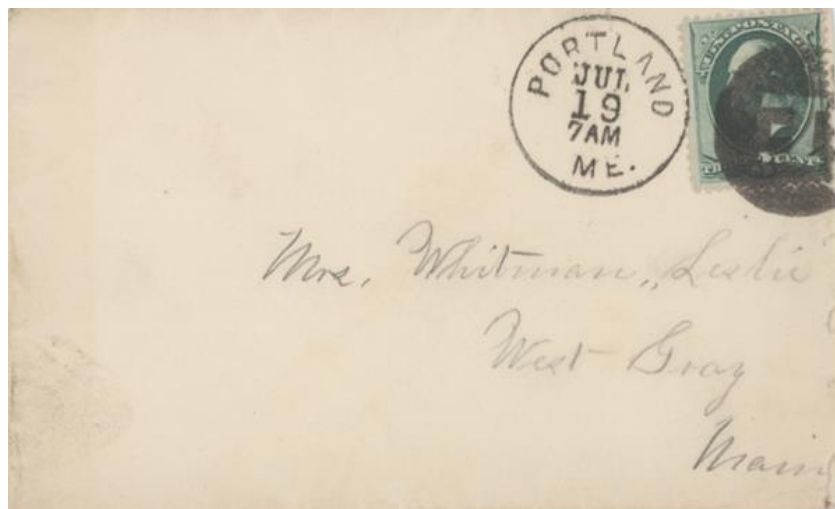 PORTLAND
JUL
19
7AM
ME.
U.S. POSTAGE
Mrs. Whitman, Leslie
West Gray
Main